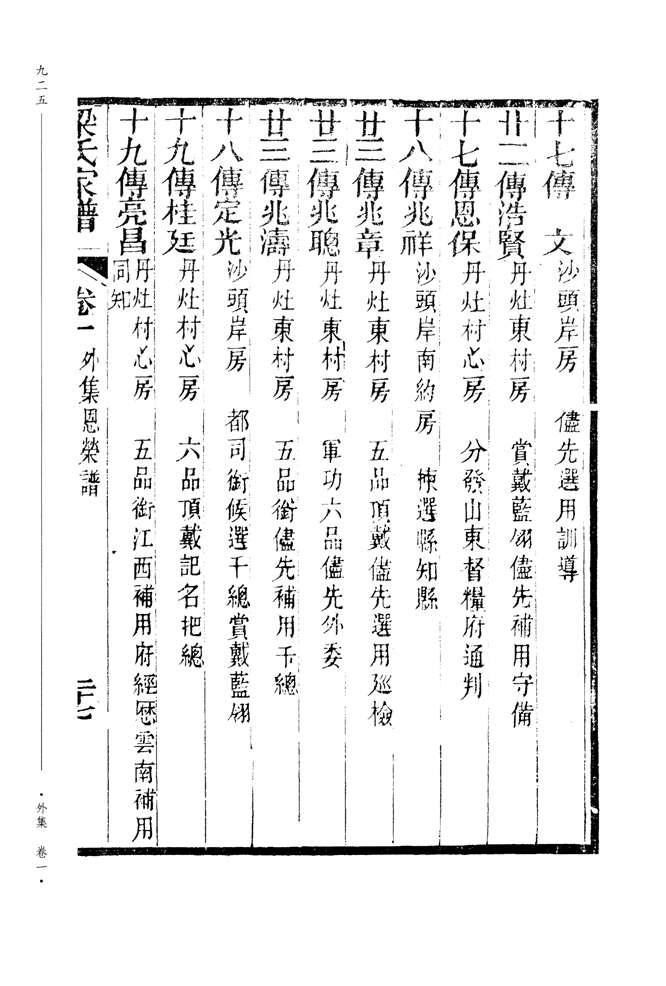 十七傳　文沙頭岸房　儘先選用訓導
廿二傳浩賢丹灶東村房　賞戴藍翎儘先補用守備
十七傳恩保丹灶村心房　分發山東督糧府通判
十八傳兆祥沙頭岸南約房　揀選縣知縣
廿三傳兆章丹灶東村房　五品頂戴儘先選用廵檢
廿三傳兆聰丹灶東村房　軍功六品儘先外委
廿三傳兆濤丹灶東村房　五品銜儘先補用千總
十八傳定光沙頭岸房　都司銜候選千總賞戴藍翎
十九傳桂廷丹灶村心房　六品頂戴記名把總
十九傳亮昌丹灶村心房　五品銜江西補用府經歷雲南補用
同知
梁氏家譜　卷一　外集恩榮譜　二十七
九二五
·外集　卷一·